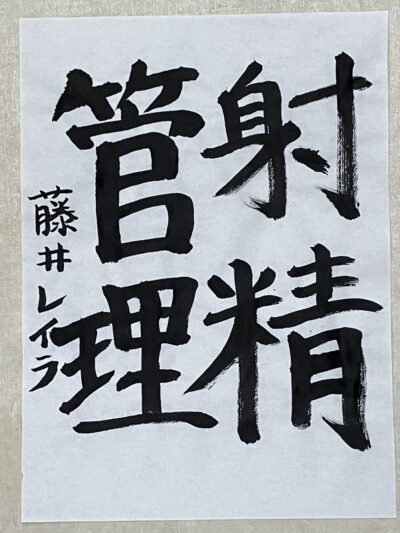 射精
管理
藤井レイラ